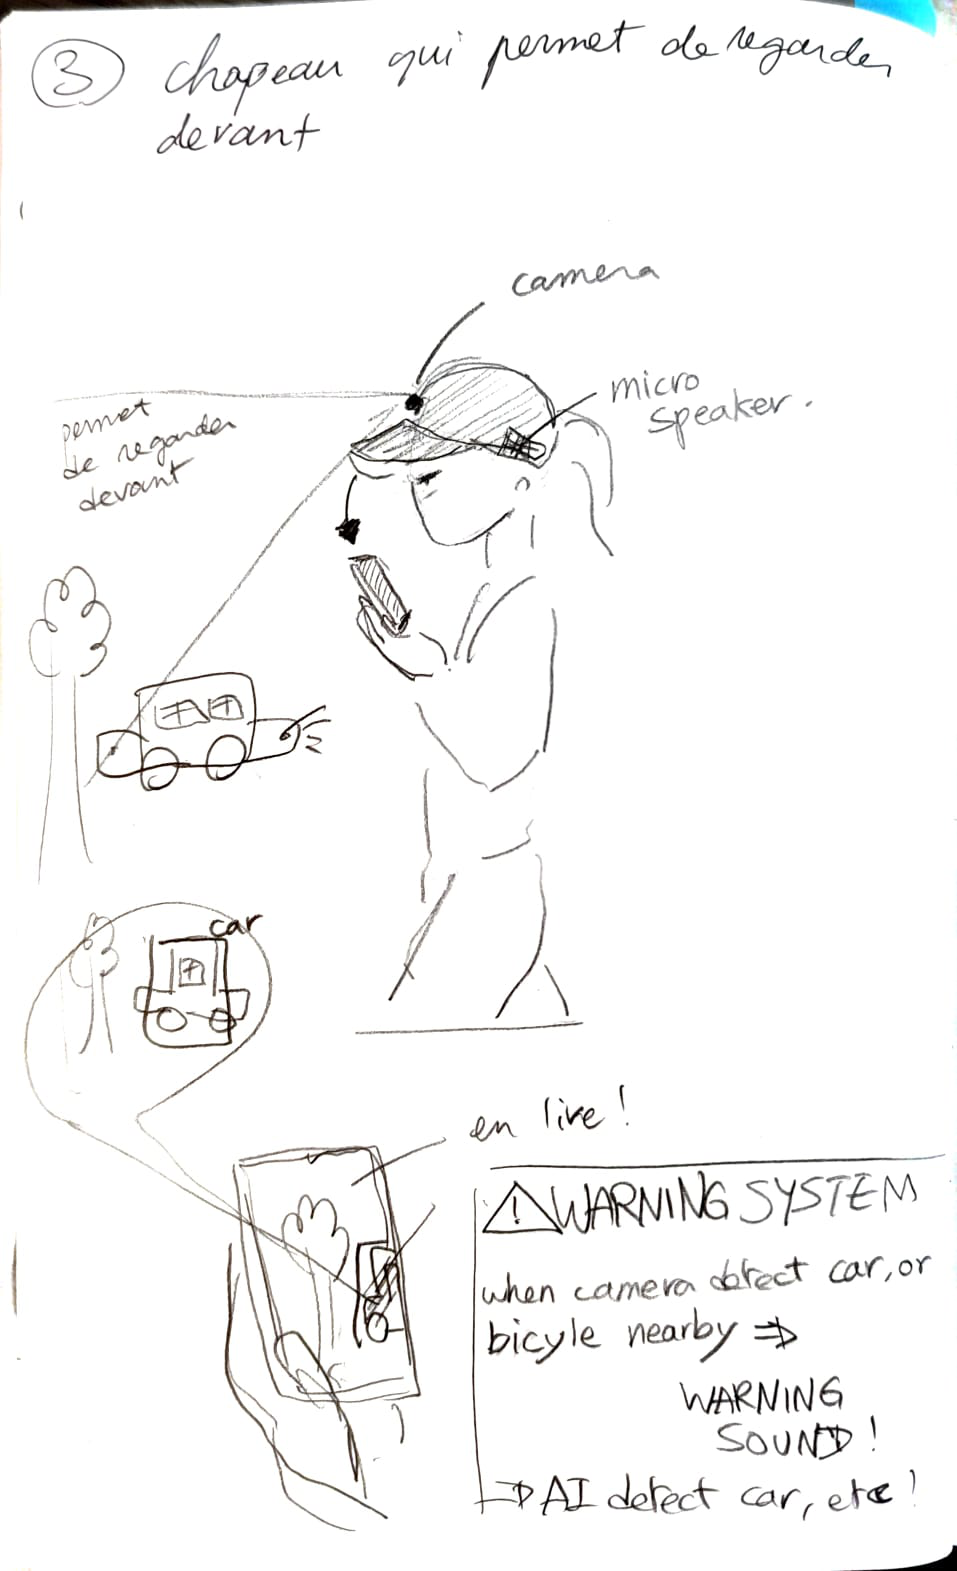 3 chapeau qui permet de regarder
devant
camera
micro
speaker.
permet
de regarder
devant
car
en live !
⚠ WARNING SYSTEM
when camera detect car, or
bicyle nearby ⇒
WARNING
SOUND !
⇒ AI detect car, etc !